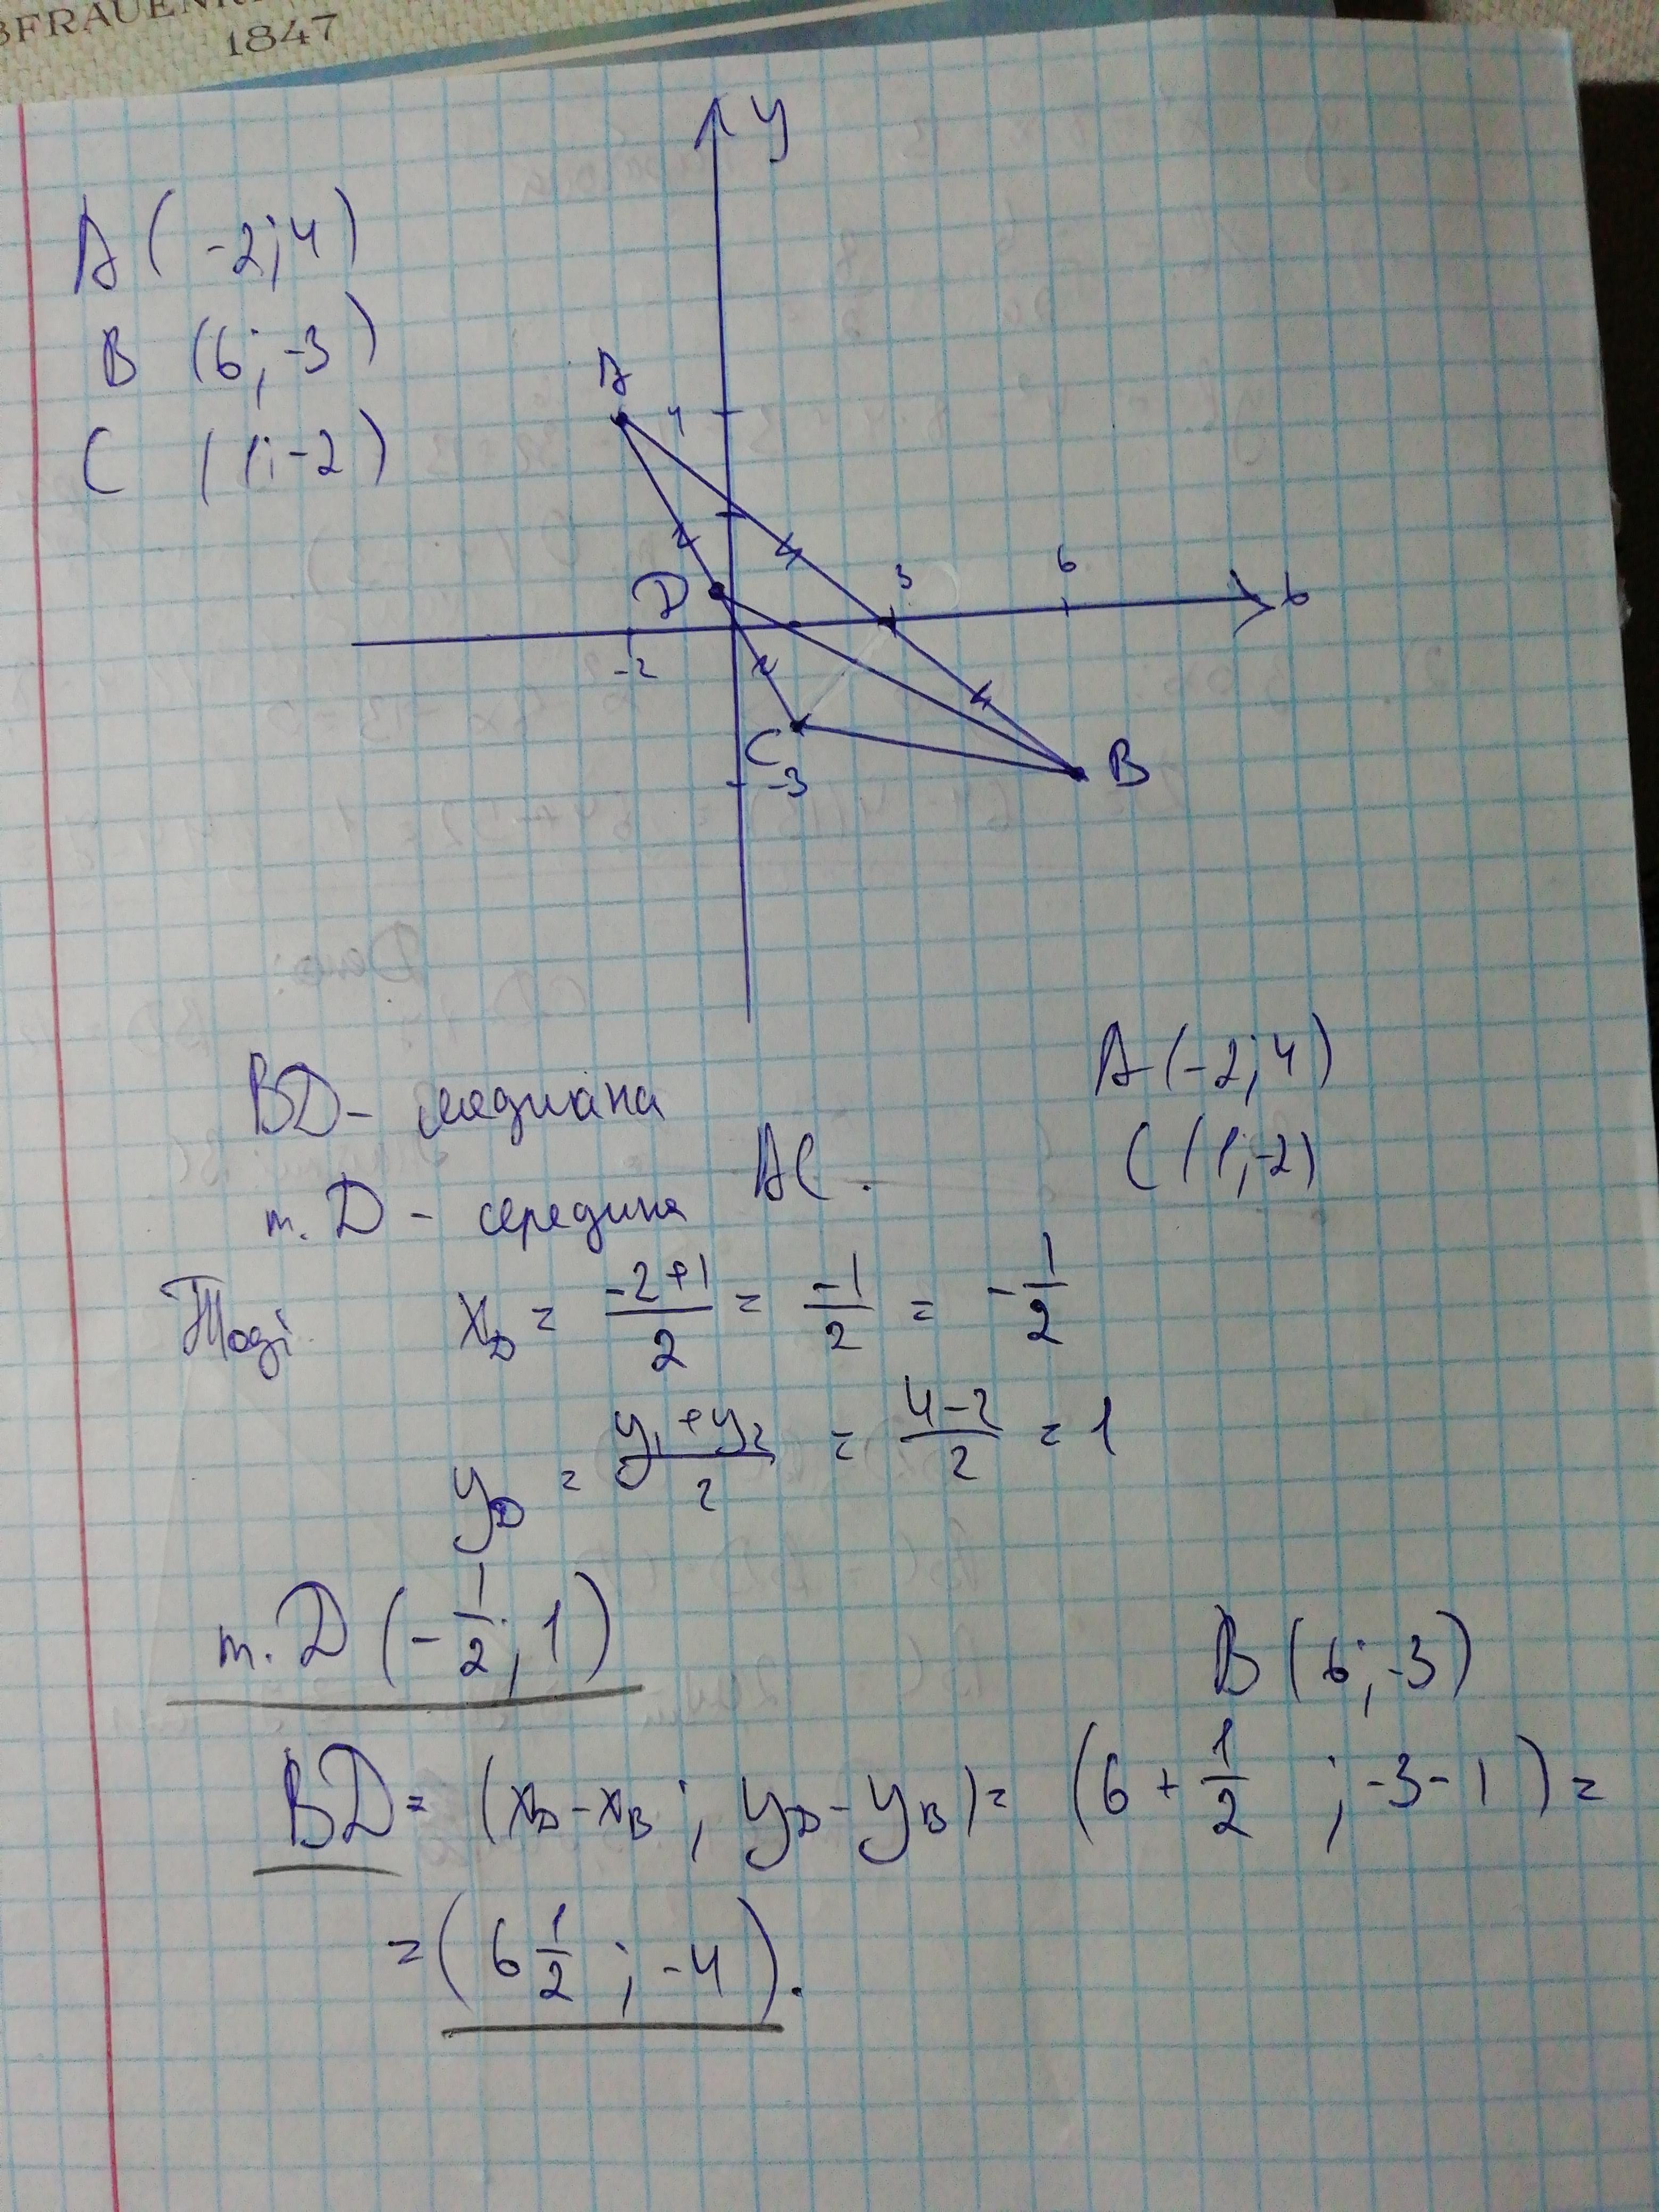 1847
y
A (-2; 4)
B (6; -3)
C (1; -2)
A
4
D
3
6
-2
C
-3
B
BD - медиана
A (-2; 4)
т. D - середина AC.
C (1; -2)
Тоді x_D = (-2+1)/2 = -1/2 = -1/2
y_D = (y₁+y₂)/2 = (4-2)/2 = 1
т. D (-1/2; 1)
B (6; -3)
BD = (x_D - x_B ; y_D - y_B) = (6 + 1/2 ; -3-1) =
= (6 1/2 ; -4).